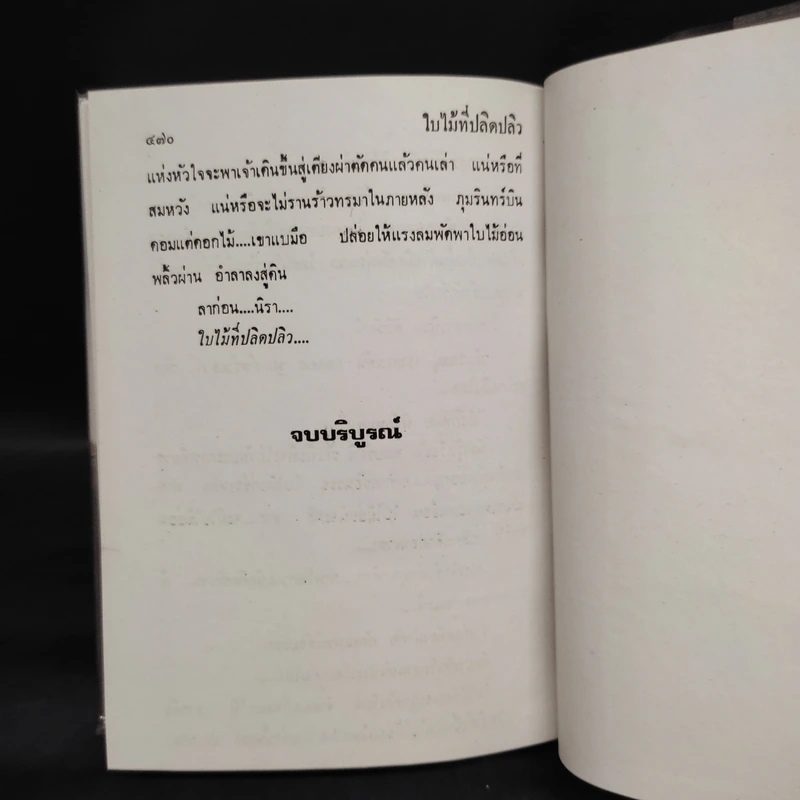 ๔๗๐
ใบไม้ที่ปลิดปลิว
แห่งหัวใจจะพาเจ้าเดินขึ้นสู่เตียงผ่าตัดคนแล้วคนเล่า แน่หรือที่
สมหวัง แน่หรือจะไม่รานร้าวทรมาในภายหลัง ภุมรินทร์บิน
ดอมแต่ดอกไม้....เขาแบมือ ปล่อยให้แรงลมพัดพาใบไม้อ่อน
พลิ้วผ่าน อำลาลงสู่ดิน
ลาก่อน....นิรา....
ใบไม้ที่ปลิดปลิว....
จบบริบูรณ์